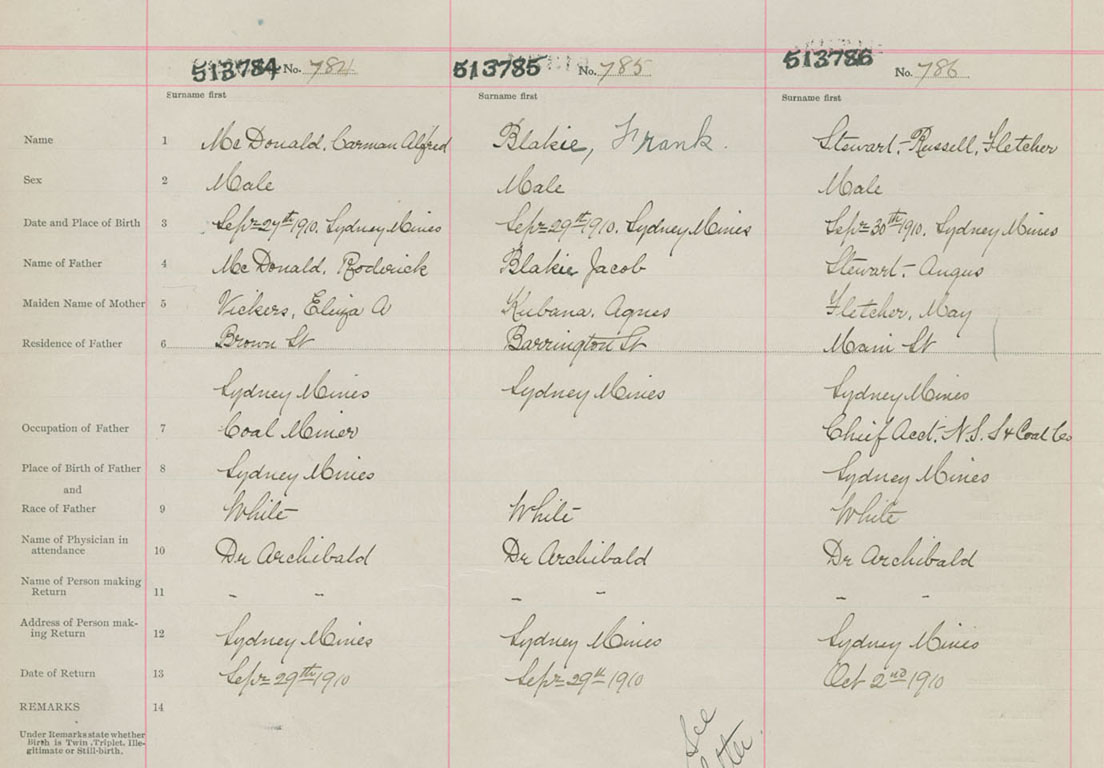 513784 No. 784 513785 No. 785 513786 No. 786
Surname first Surname first Surname first
Name 1 McDonald, Carman Alfred Blakie, Frank. Stewart,-Russell, Fletcher
Sex 2 Male Male Male
Date and Place of Birth 3 Sept 27th 1910. Sydney Mines Sept 29th 1910. Sydney Mines Sept 30th 1910. Sydney Mines
Name of Father 4 McDonald, Roderick Blakie Jacob Stewart,- Angus
Maiden Name of Mother 5 Vickers, Eliza A Kubana, Agnes Fletcher, May
Residence of Father 6 Brown St Barrington St Main St
Sydney Mines Sydney Mines Sydney Mines
Occupation of Father 7 Coal Miner Chief Acct, N.S. S & Coal Co
Place of Birth of Father 8 Sydney Mines Sydney Mines
and
Race of Father 9 White White White
Name of Physician in
attendance 10 Dr Archibald Dr Archibald Dr Archibald
Name of Person making
Return 11 - - - - - -
Address of Person mak-
ing Return 12 Sydney Mines Sydney Mines Sydney Mines
Date of Return 13 Sept 29th 1910 Sept 29th 1910 Oct 2nd 1910
REMARKS 14
See
Under Remarks state whether
Birth is Twin, Triplet, Ille-
gitimate or Still-birth.